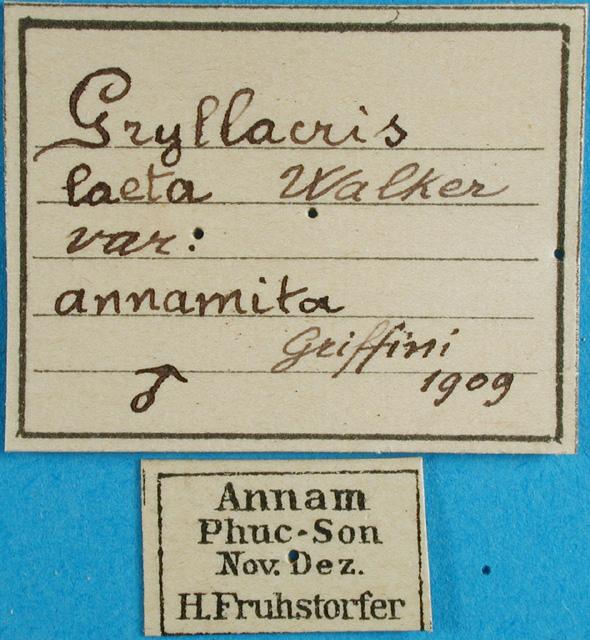 Gryllacris
laeta Walker
var:
annamita
Griffini
♂ 1909
Annam
Phuc-Son
Nov. Dez.
H.Fruhstorfer